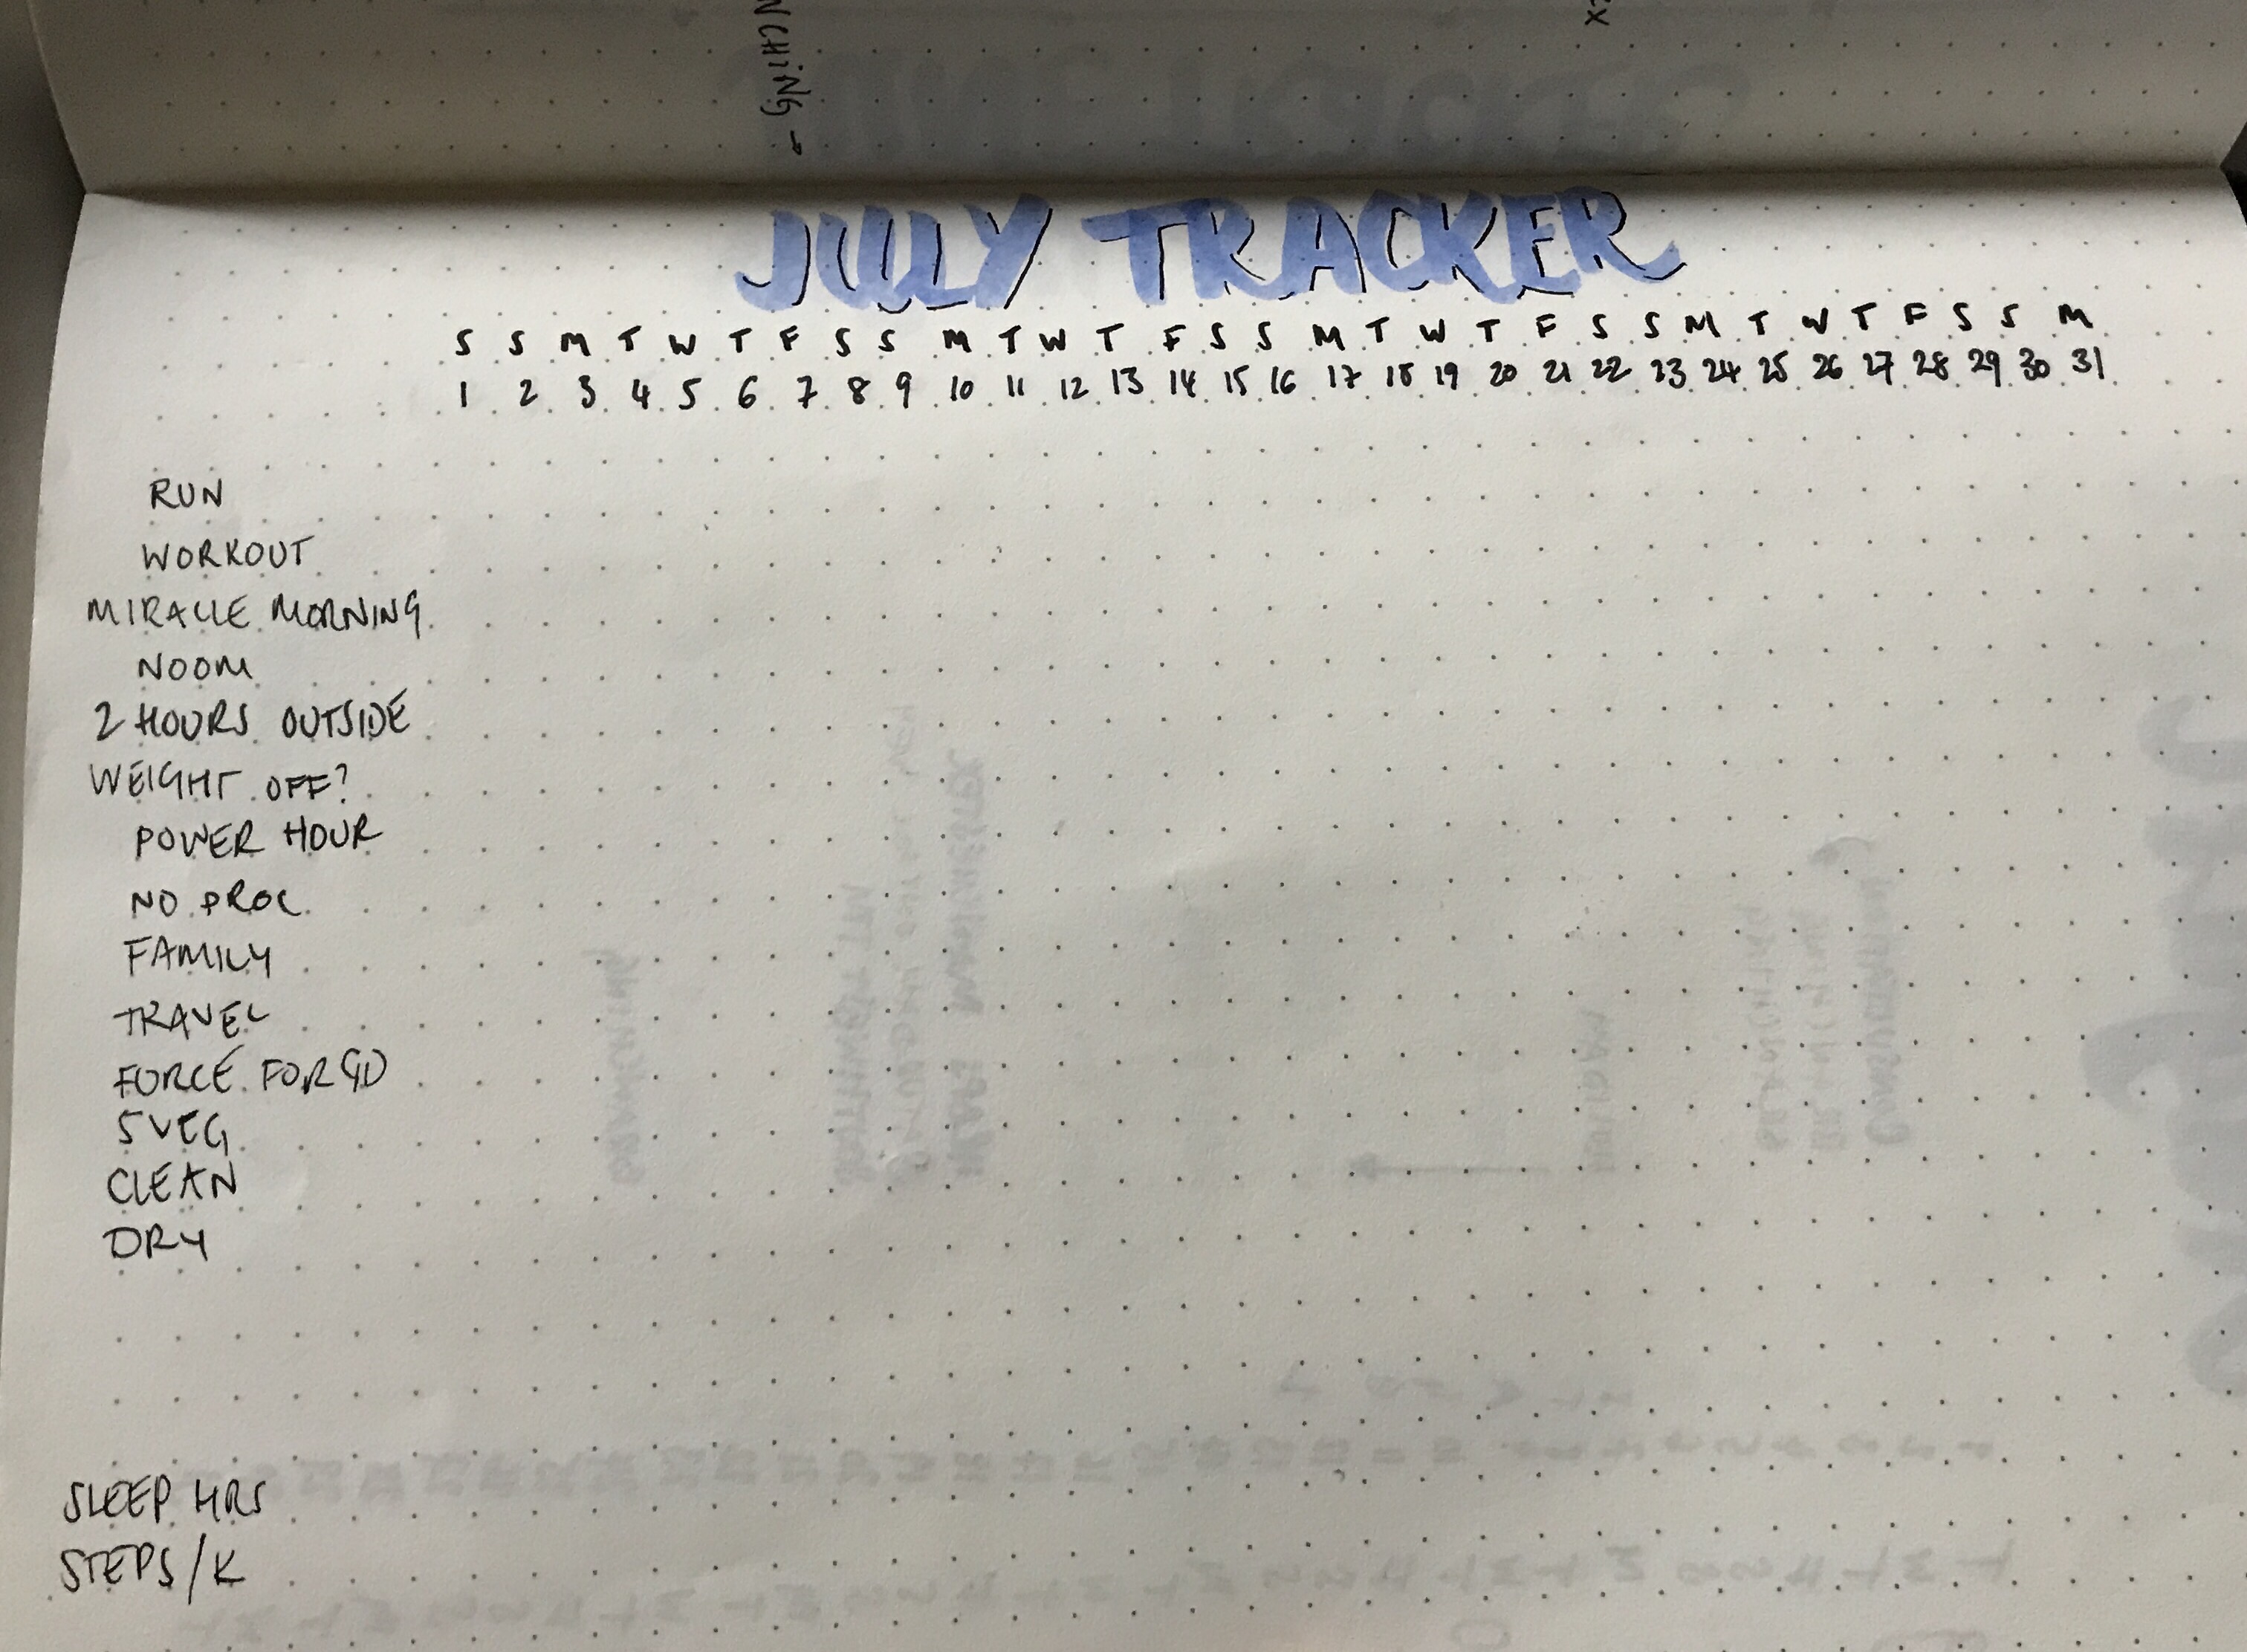 NCHING
JULY TRACKER
S S M T W T F S S M T W T F S S M T W T F S S M T W T F S S M
1 2 3 4 5 6 7 8 9 10 11 12 13 14 15 16 17 18 19 20 21 22 23 24 25 26 27 28 29 30 31
RUN
WORKOUT
MIRACLE MORNING
NOOM
2 HOURS OUTSIDE
WEIGHT OFF?
POWER HOUR
NO PROC
FAMILY
TRAVEL
FORCE FOR GD
5 VEG
CLEAN
DRY
SLEEP HRS
STEPS/K